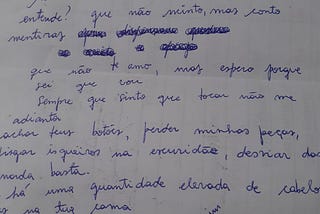 entende? que não minto, mas conto
mentiras
que não te amo, mas espero porque
sei que vou
Sempre que sinto que tocar não me
adianta
achar teus botões, perder minhas peças,
isqueiros na escuridão, desviar das
basta.
há uma quantidade elevada de cabelo
na tua cama